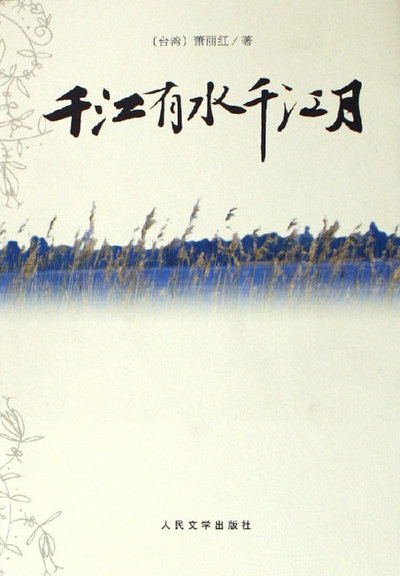 (台湾) 萧丽红／著
千江有水千江月
人民文学出版社